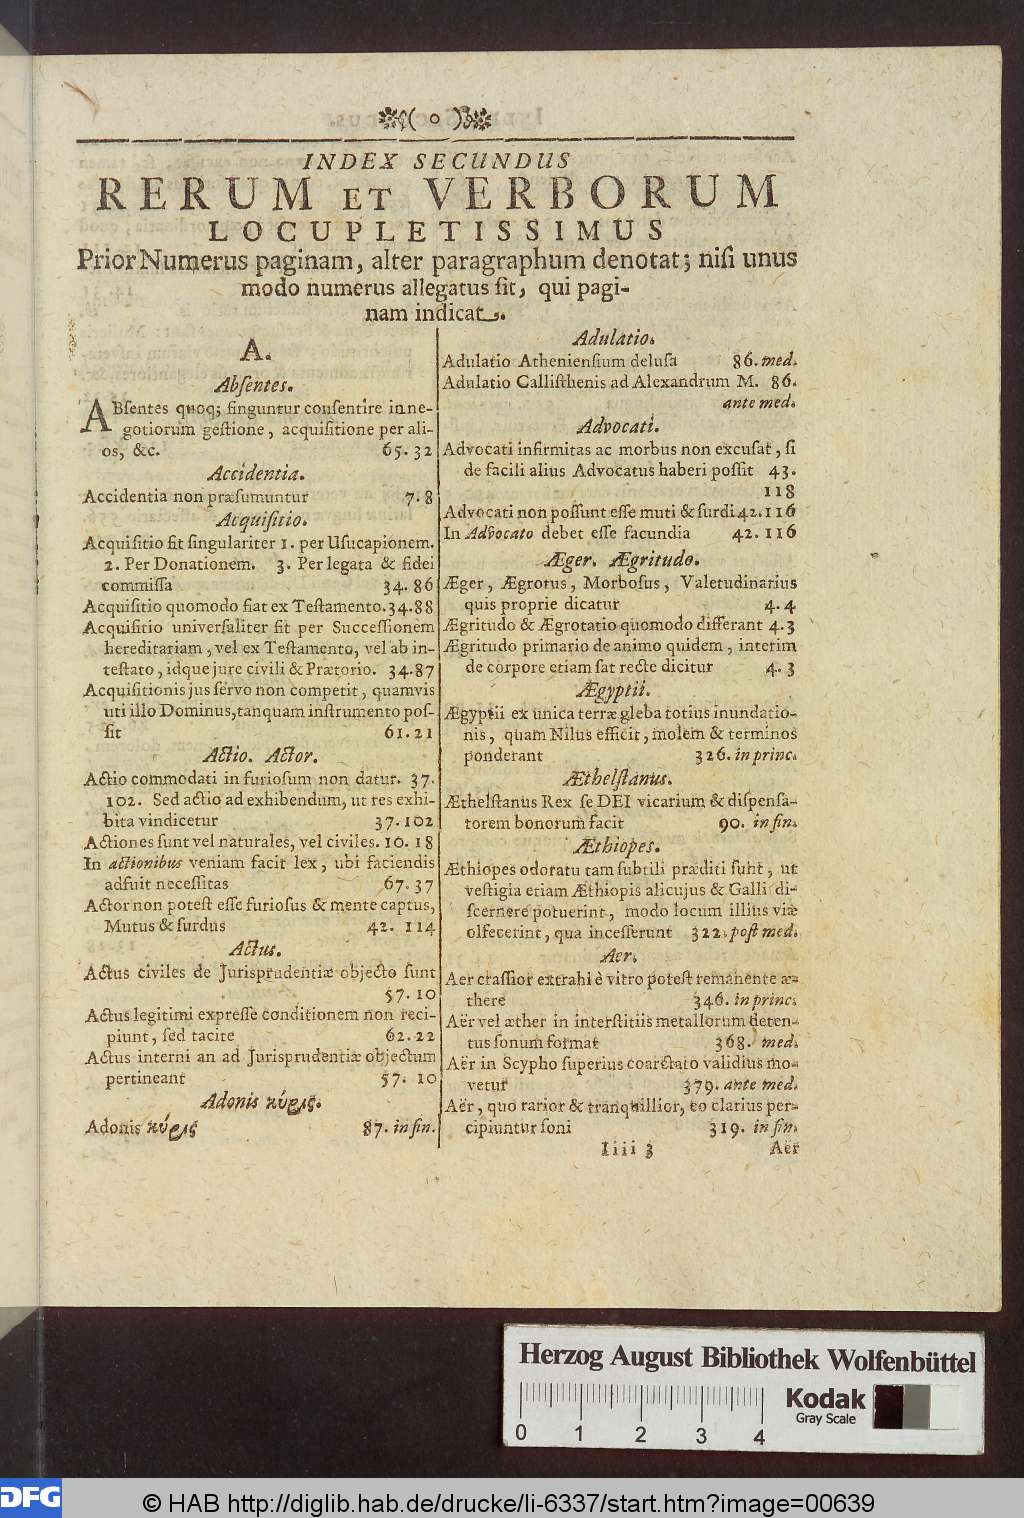 ( o )
INDEX SECUNDUS
RERUM ET VERBORUM
LOCUPLETISSIMUS
Prior Numerus paginam, alter paragraphum denotat; niſi unus
modo numerus allegatus ſit, qui pagi-
nam indicat.
A.
Abſentes.
ABſentes quoq; finguntur conſentire in ne-
gotiorum geſtione, acquiſitione per ali-
os, &c. 65. 32
Accidentia.
Accidentia non præſumuntur 7. 8
Acquiſitio.
Acquiſitio fit ſingulariter 1. per Uſucapionem.
2. Per Donationem. 3. Per legata & fidei
commiſſa 34. 86
Acquiſitio quomodo fiat ex Teſtamento. 34. 88
Acquiſitio univerſaliter fit per Succeſſionem
hereditariam, vel ex Teſtamento, vel ab in-
teſtato, idque jure civili & Prætorio. 34. 87
Acquiſitionis jus ſervo non competit, quamvis
uti illo Dominus, tanquam inſtrumento poſ-
ſit 61. 21
Actio. Actor.
Actio commodati in furioſum non datur. 37.
102. Sed actio ad exhibendum, ut res exhi-
bita vindicetur 37. 102
Actiones ſunt vel naturales, vel civiles. 10. 18
In actionibus veniam facit lex, ubi faciendis
adfuit neceſſitas 67. 37
Actor non poteſt eſſe furioſus & mente captus,
Mutus & ſurdus 42. 114
Actus.
Actus civiles de Jurisprudentiæ objecto ſunt
57. 10
Actus legitimi expreſſe conditionem non reci-
piunt, ſed tacite 62. 22
Actus interni an ad Jurisprudentiæ objectum
pertineant 57. 10
Adonis κύρις.
Adonis κύρις 87. in fin.
Adulatio.
Adulatio Athenienſium deluſa 86. med.
Adulatio Calliſthenis ad Alexandrum M. 86.
ante med.
Advocati.
Advocati infirmitas ac morbus non excuſat, ſi
de facili alius Advocatus haberi poſſit 43.
118
Advocati non poſſunt eſſe muti & ſurdi 42. 116
In Advocato debet eſſe facundia 42. 116
Æger. Ægritudo.
Æger, Ægrotus, Morboſus, Valetudinarius
quis proprie dicatur 4. 4
Ægritudo & Ægrotatio quomodo differant 4. 3
Ægritudo primario de animo quidem, interim
de corpore etiam ſat recte dicitur 4. 3
Ægyptii.
Ægyptii ex unica terræ gleba totius inundatio-
nis, quam Nilus efficit, molem & terminos
ponderant 326. in princ.
Æthelſtanus.
Æthelſtanus Rex ſe DEI vicarium & diſpenſa-
torem bonorum facit 90. in fin.
Æthiopes.
Æthiopes odoratu tam ſubtili præditi ſunt, ut
veſtigia etiam Æthiopis alicujus & Galli di-
ſcernere potuerint, modo locum illius viæ
olfecerint, qua inceſſerunt 322. poſt med.
Aer.
Aer craſſior extrahi è vitro poteſt remanente æ-
there 346. in princ.
Aër vel æther in interſtitiis metallorum deten-
tus ſonum format 368. med.
Aër in Scypho ſuperius coarctato validius mo-
vetur 379. ante med.
Aër, quo rarior & tranquillior, eo clarius per-
cipiuntur ſoni 319. in fin.
Iiii 3 Aër
Herzog August Bibliothek Wolfenbüttel
Kodak
Gray Scale
0 1 2 3 4
DFG
© HAB http://diglib.hab.de/drucke/li-6337/start.htm?image=00639